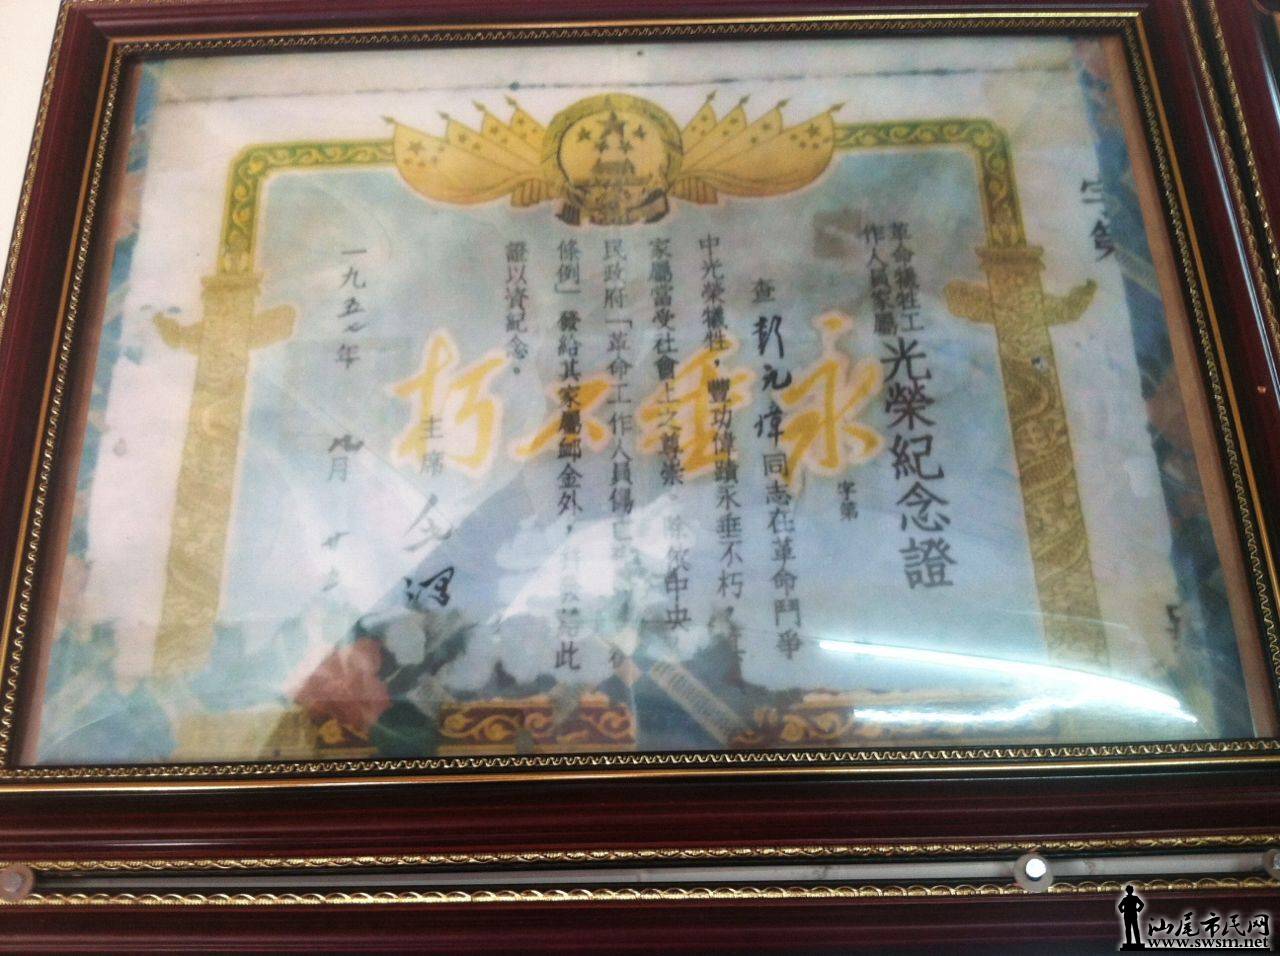 革命犧牲工
作人員家屬
光榮紀念證
字第
查彭元偉同志在革命鬥爭
中光榮犧牲，豐功偉蹟永垂不朽，其
家屬當受社會上之尊崇。除依中央
民政府「革命工作人員傷亡
條例」發給其家屬卹金外，
此
證以資紀念。
主席
一九五七年 九月 廿
永垂不朽
汕尾市民网
www.swsm.net